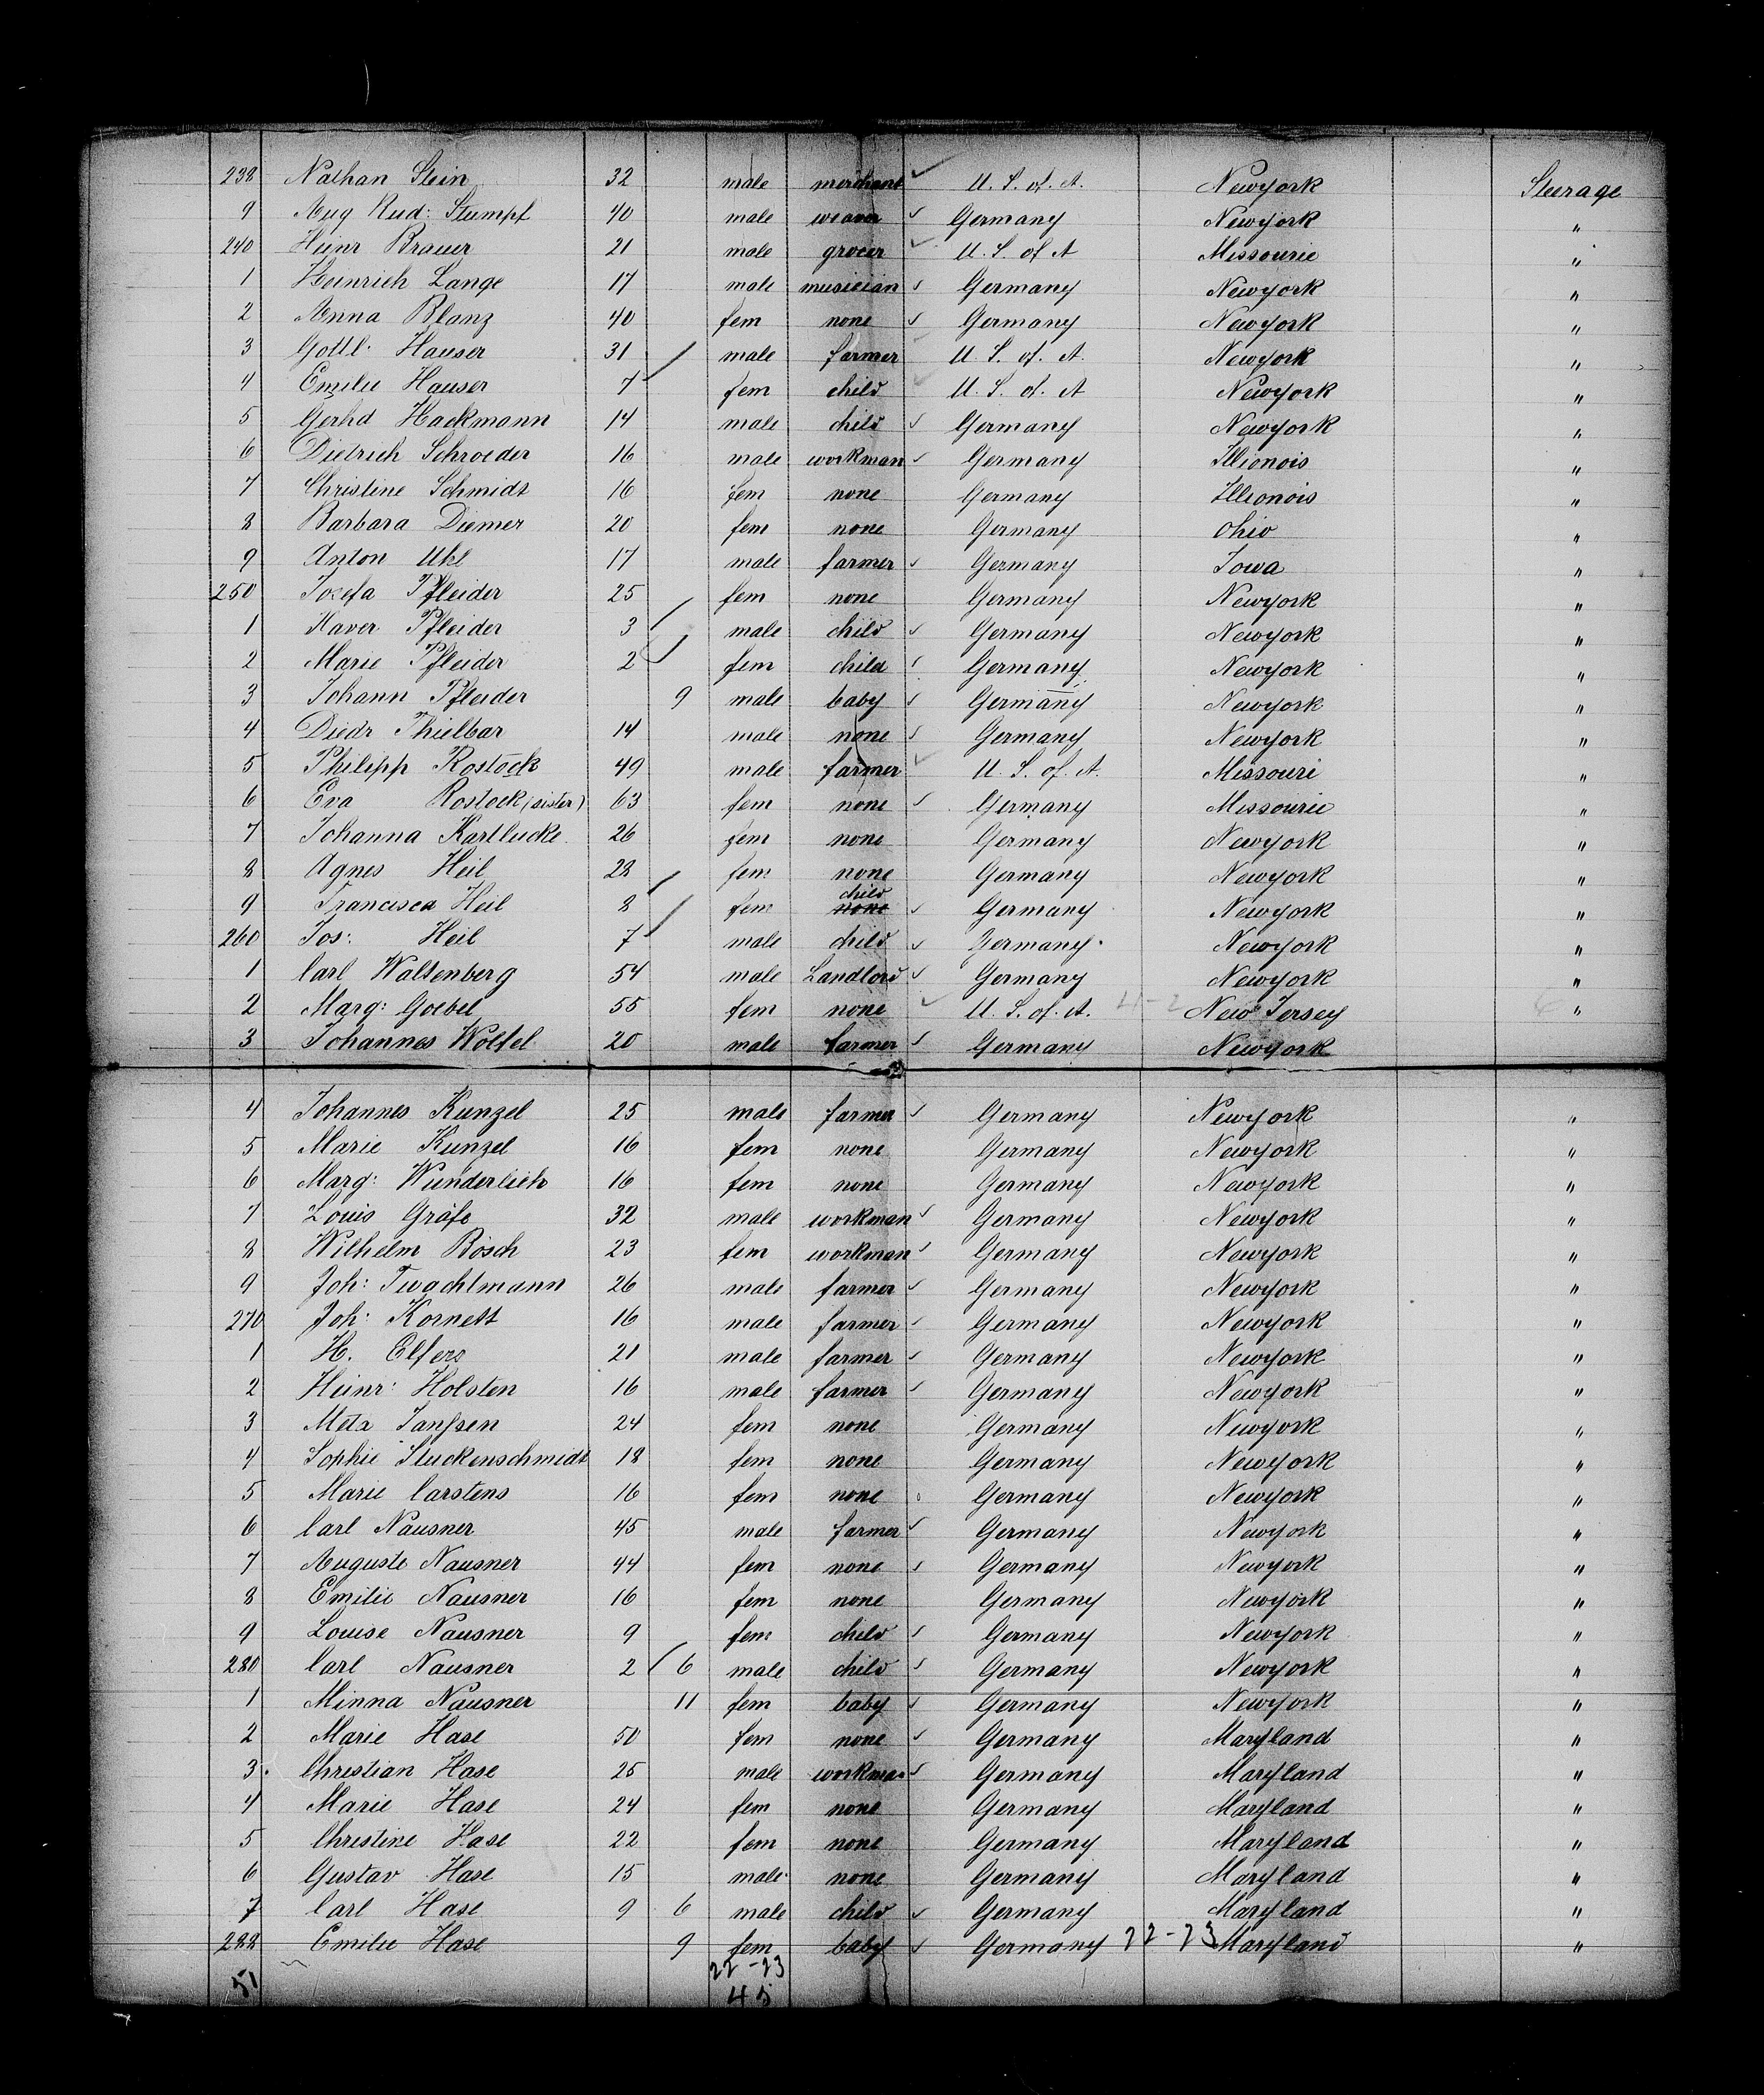 238 Nathan Stein 32 male merchant U. S. of. A. Newyork Steerage
9 Aug Rud: Stumpf 40 male weaver Germany Newyork "
240 Heinr Brauer 21 male grocer U. S. of A Missourie "
1 Heinrich Lange 17 male musician Germany Newyork "
2 Anna Blanz 40 fem none Germany Newyork "
3 Gottl. Hauser 31 male farmer U. S. of. A. Newyork "
4 Emilie Hauser 7 fem child U. S. of. A Newyork "
5 Gerhd Hackmann 14 male child Germany Newyork "
6 Dietrich Schroeder 16 male workman Germany Illionois "
7 Christine Schmidt 16 fem none Germany Illionois "
8 Barbara Diemer 20 fem none Germany Ohio "
9 Anton Uhl 17 male farmer Germany Iowa "
250 Josefa Pfleider 25 fem none Germany Newyork "
1 Xaver Pfleider 3 male child Germany Newyork "
2 Marie Pfleider 2 fem child Germany Newyork "
3 Johann Pfleider 9 male baby Germany Newyork "
4 Diedr Thielbar 14 male none Germany Newyork "
5 Philipp Rostock 49 male farmer U. S. of. A. Missouri "
6 Eva Rostock (sister) 63 fem none Germany Missourie "
7 Johanna Kartlucke 26 fem none Germany Newyork "
8 Agnes Heil 28 fem none Germany Newyork "
9 Francisca Heil 8 fem none child Germany Newyork "
260 Jos: Heil 7 male child Germany Newyork "
1 Carl Waltenberg 54 male Landlord Germany Newyork "
2 Marg: Goebel 55 fem none U. S. of. A. New Jersey "
3 Johannes Wolfel 20 male farmer Germany Newyork
4 Johannes Kunzel 25 male farmer Germany Newyork "
5 Marie Kunzel 16 fem none Germany Newyork "
6 Marg: Wunderlich 16 fem none Germany Newyork "
7 Louis Gräfe 32 male workman Germany Newyork "
8 Wilhelm Bösch 23 fem workman Germany Newyork "
9 Joh: Twachtmann 26 male farmer Germany Newyork "
270 Joh: Kornett 16 male farmer Germany Newyork "
1 H. Elfers 21 male farmer Germany Newyork "
2 Heinr: Holsten 16 male farmer Germany Newyork "
3 Meta Janssen 24 fem none Germany Newyork "
4 Sophie Stuckenschmidt 18 fem none Germany Newyork "
5 Marie Carstens 16 fem none Germany Newyork "
6 Carl Nausner 45 male farmer Germany Newyork "
7 Auguste Nausner 44 fem none Germany Newyork "
8 Emilie Nausner 16 fem none Germany Newyork "
9 Louise Nausner 9 fem child Germany Newyork "
280 Carl Nausner 2 6 male child Germany Newyork "
1 Minna Nausner 11 fem baby Germany Newyork "
2 Marie Hase 50 fem none Germany Maryland "
3 Christian Hase 25 male workman Germany Maryland "
4 Marie Hase 24 fem none Germany Maryland "
5 Christine Hase 22 fem none Germany Maryland "
6 Gustav Hase 15 male none Germany Maryland "
7 Carl Hase 9 6 male child Germany Maryland "
288 Emilie Hase 9 fem baby Germany 22-23 Maryland "
51 22-23
45